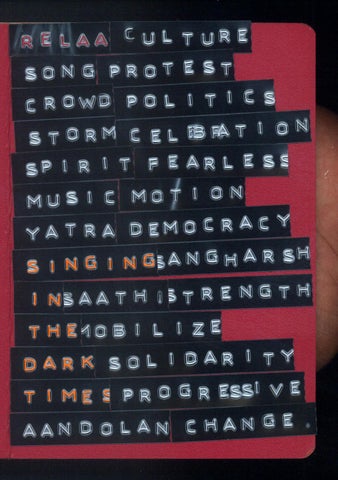 RELAA CULTURE
SONG PROTEST
CROWD POLITICS
STORM CELEBRATION
SPIRIT FEARLESS
MUSIC MOTION
YATRA DEMOCRACY
SINGING SANGHARSH
IN SAATHI STRENGTH
THE MOBILIZE
DARK SOLIDARITY
TIMES PROGRESSIVE
AANDOLAN CHANGE